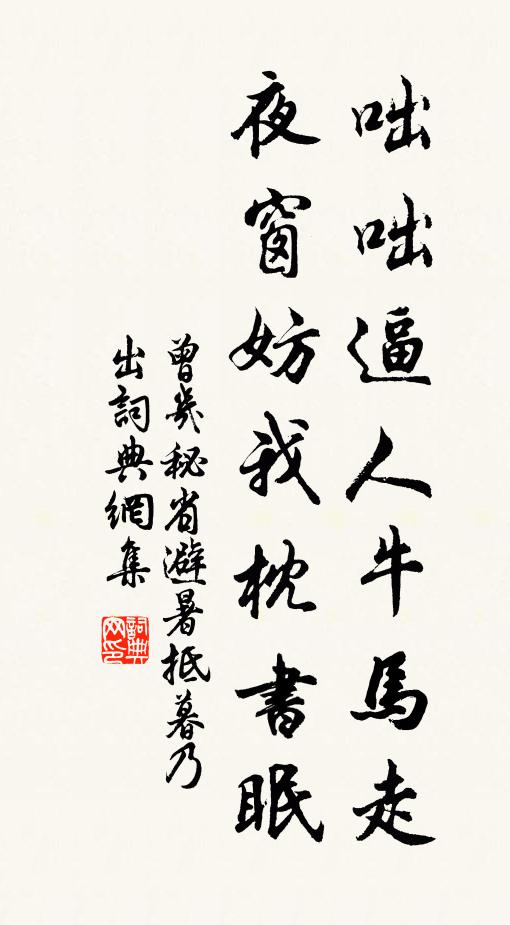 咄咄逼人牛馬走
夜窗妨我枕書眠
曾幾秘省避暑抵暮乃
出詞典網集
詞典網印